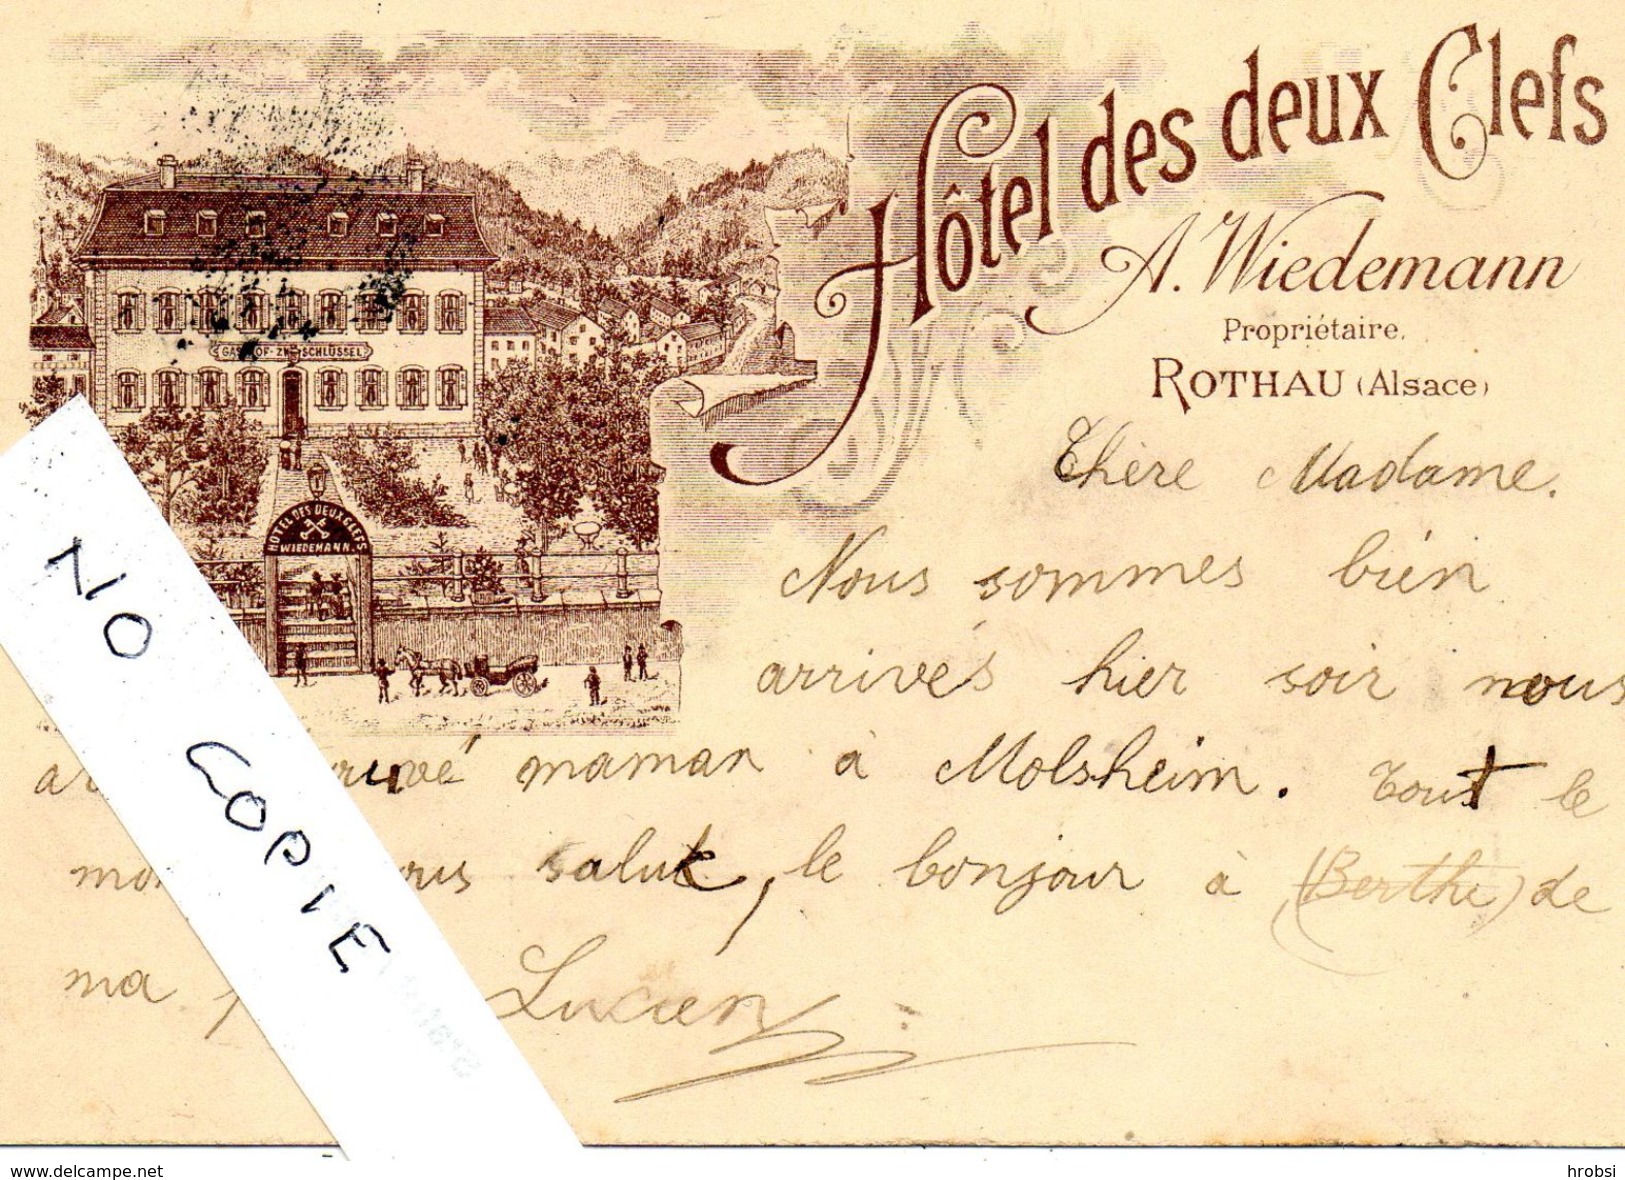 Hôtel des deux Clefs
A. Wiedemann
Propriétaire.
ROTHAU (Alsace)
GASTHOF - ZWEI SCHLÜSSEL
HOTEL DES DEUX CLEFS
WIEDEMANN.
Chère Madame.
Nous sommes bien
arrivés hier soir nous
maman à Molsheim. Tout le
salut, le bonjour à (Berthe) de
ma
Lucien
NO COPIE
www.delcampe.net
hrobsi